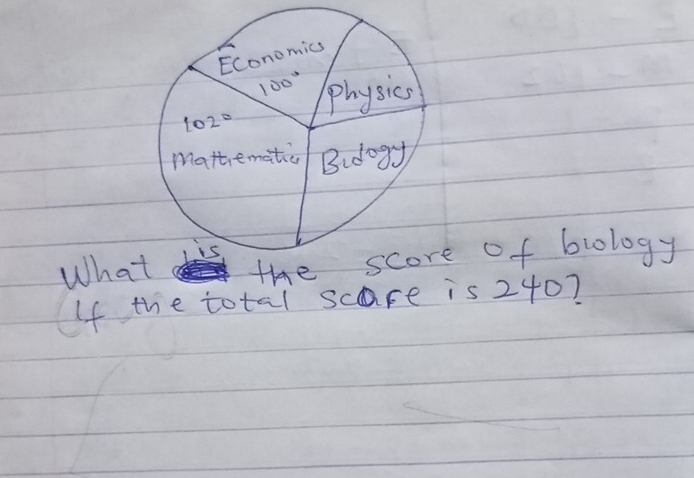 Economics
100°
Physics
102°
Mathematics
Biology
What is the score of biology
if the total score is 240?